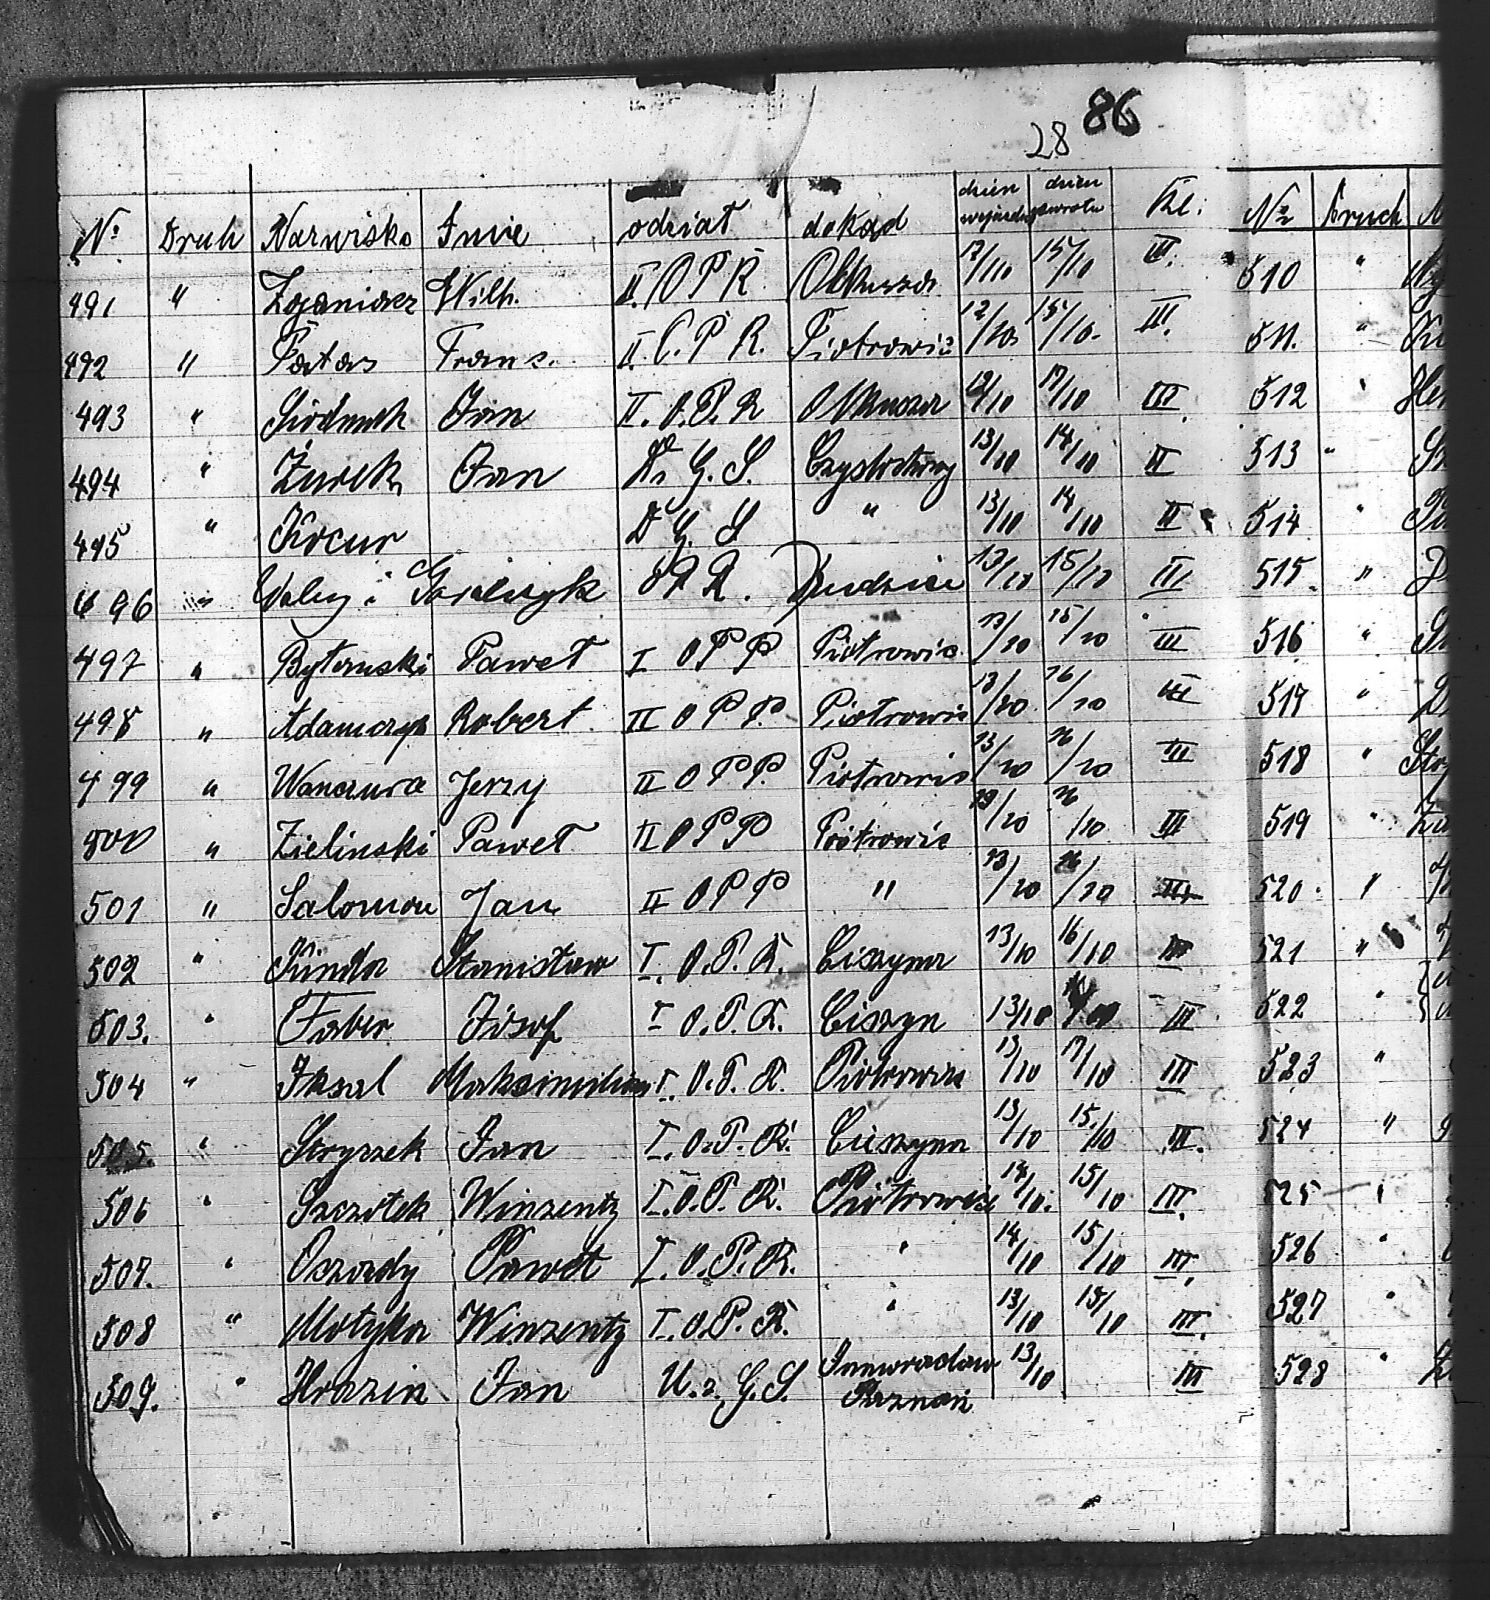 86
28
№ Druh Nazwisko Imie odział dokąd dzień wyjazdu dzień powrotu Kl.
491 " Wilh. II. O P R Olkusza 12/10 15/10 III.
492 " Patas Franc. II. O. P. R. Piotrowic 12/10. 15/10. III.
493 " Jan II. O. P. R Olkusza 12/10 17/10 III.
494 " Żurek Jan D. G. S. 13/10 14/10 II
495 " Kocur D G S " 13/10 14/10 II
496 " i O P R. 13/10 15/10 III
497 " Bytomski Paweł I O P P Piotrowic 13/10 15/10 III
498 " Adamczyk Robert II O P P. Piotrowic 13/10 16/10 III
499 " Wanczura Jerzy II O P P. Piotrowic 13/10 16/10 III
500 " Zielinski Paweł II O P P Piotrowic 13/10 16/10 III
501 " Salomon Jan II O P P " 13/10 16/10 III
502 " Stanisław I. O. P. R. Cieszyna 13/10 16/10 III
503. " Faber Józef I O. P. R. Cieszyn 13/10 III
504 " Maksimilian I. O. P. R. Piotrowice 13/10 17/10 III
505. " Jan I. O. P. R. Cieszyna 13/10 15./10 III.
506 " Szczotek Winzentz I. O. P. R. Piotrowice 14/10. 15/10 III.
507. " Oczady Paweł I. O. P. R. " 14/10 15/10 III.
508 " Motyka Winzentz I. O. P. R. " 13/10 15/10 III.
509. " Hrazin Jan U. z. G. S. Inowracław 13/10 III
Poznań
№ Druch
510 "
511. "
512 "
513 "
514 "
515 "
516 "
517 "
518 "
519 "
520 "
521 "
522 "
523 "
524 "
525 "
526 "
527 "
528 "